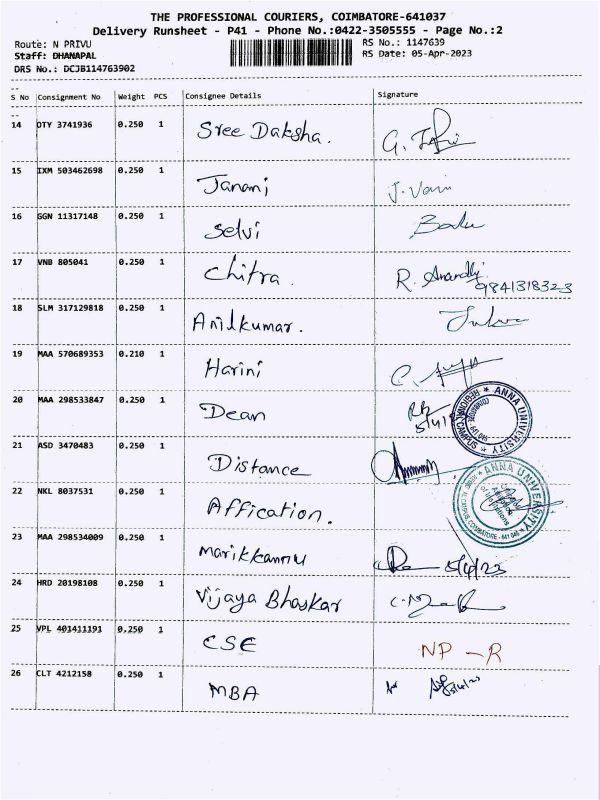 THE PROFESSIONAL COURIERS, COIMBATORE-641037
Delivery Runsheet - P41 - Phone No.:0422-3505555 - Page No.:2
Route: N PRIVU RS No.: 1147639
Staff: DHANAPAL RS Date: 05-Apr-2023
DRS No.: DCJB114763902
S No Consignment No Weight PCS Consignee Details Signature
14 OTY 3741936 0.250 1 Sree Daksha.
15 IXM 503462698 0.250 1 Janani J. Vani
16 GGN 11317148 0.250 1 Selvi
17 VNB 805041 0.250 1 Chitra. R. 9841318323
18 SLM 317129818 0.250 1 Anilkumar.
19 MAA 570689353 0.210 1 Harini
20 MAA 298533847 0.250 1 Dean
ANNA UNIVERSITY REGIONAL CAMPUS
21 ASD 3470483 0.250 1 Distance
22 NKL 8037531 0.250 1 Affication.
ANNA UNIVERSITY COIMBATORE - 641 046
23 MAA 298534009 0.250 1 Marikkannu 5/4/23
24 HRD 20198108 0.250 1 Vijaya Bhaskar
25 VPL 401411191 0.250 1 CSE NP - R
26 CLT 4212158 0.250 1 MBA